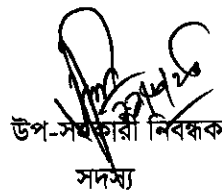 উপ-সহকারী নিবন্ধক
সদস্য